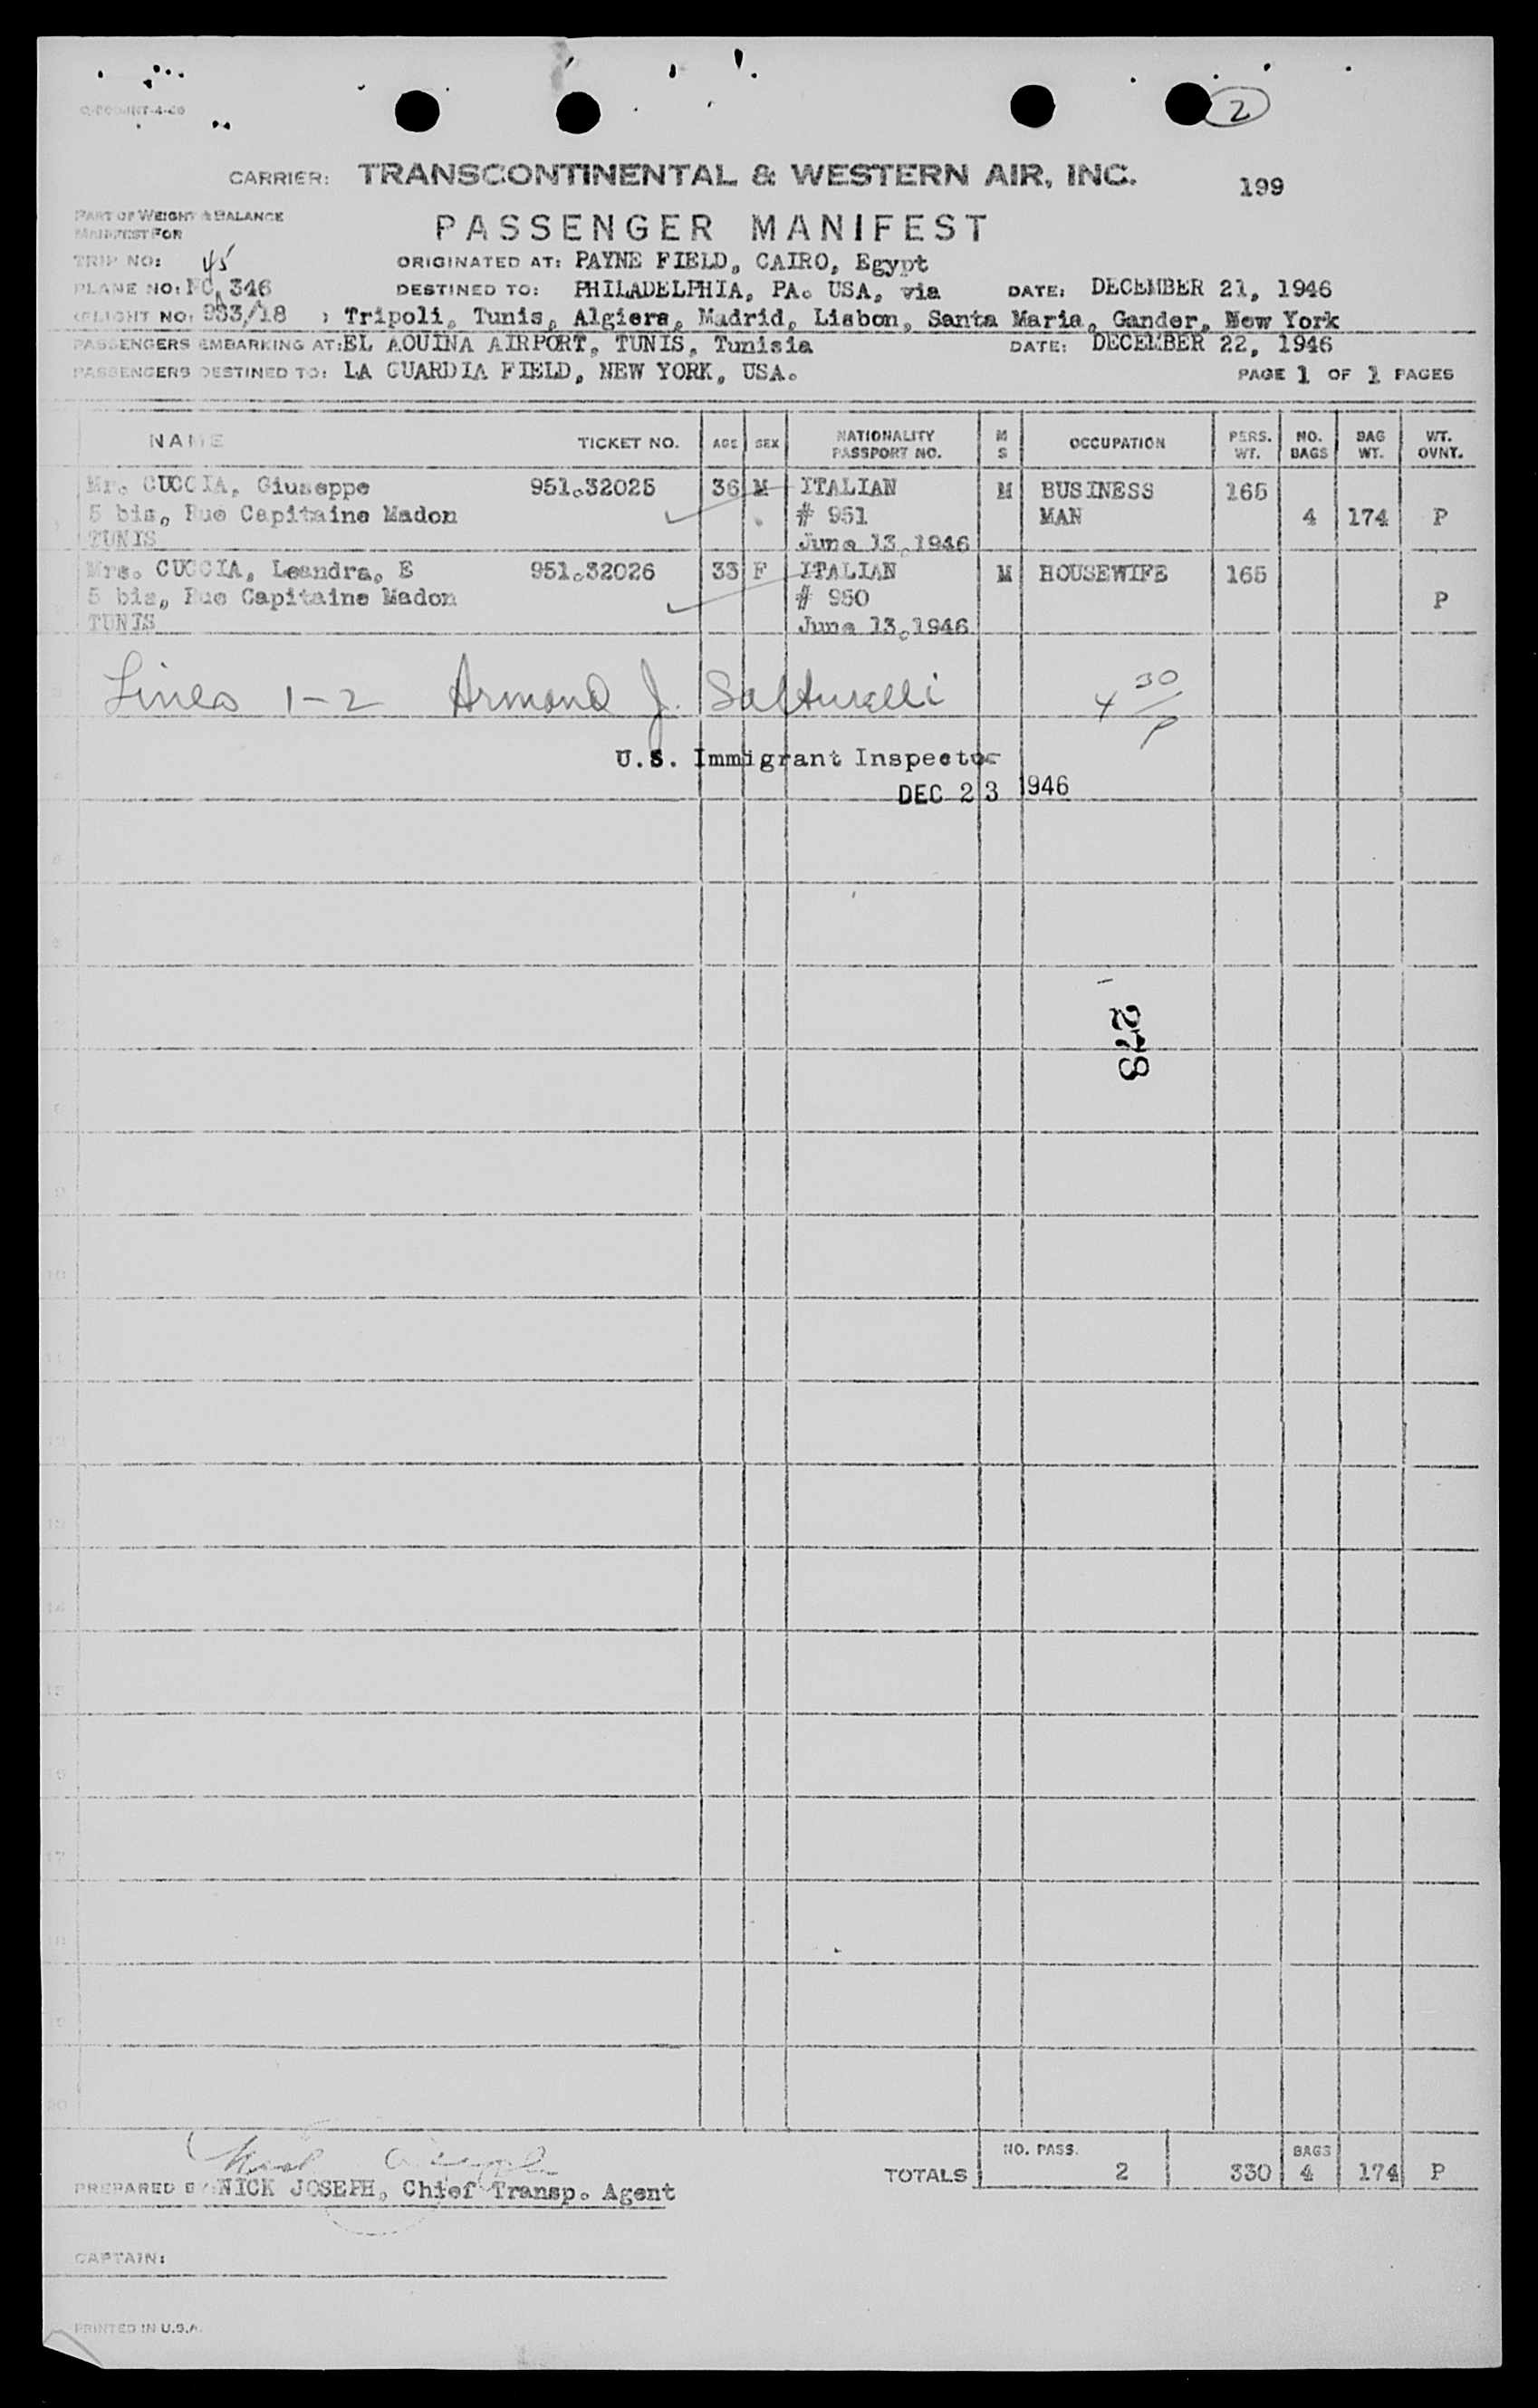 2
CARRIER: TRANSCONTINENTAL & WESTERN AIR, INC.
199
PART OF WEIGHT & BALANCE
MANIFEST FOR
PASSENGER MANIFEST
TRIP NO: 45 ORIGINATED AT: PAYNE FIELD, CAIRO, Egypt
PLANE NO: NC 346 DESTINED TO: PHILADELPHIA, PA. USA, via DATE: DECEMBER 21, 1946
FLIGHT NO: 953/18 : Tripoli, Tunis, Algiers, Madrid, Lisbon, Santa Maria, Gander, New York
PASSENGERS EMBARKING AT: EL AOUINA AIRPORT, TUNIS, Tunisia DATE: DECEMBER 22, 1946
PASSENGERS DESTINED TO: LA GUARDIA FIELD, NEW YORK, USA. PAGE 1 OF 1 PAGES
NAME TICKET NO. AGE SEX NATIONALITY PASSPORT NO. M S OCCUPATION PERS. WT. NO. BAGS BAG WT. WT. OVNT.
Mr. CUCCIA, Giuseppe 951.32025 36 M ITALIAN M BUSINESS 165
5 bis, Rue Capitaine Madon # 951 MAN 4 174 P
TUNIS June 13.1946
Mrs. CUCCIA, Leandra, E 951.32026 33 F ITALIAN M HOUSEWIFE 165
5 bis, Rue Capitaine Madon # 950 P
TUNIS June 13.1946
Lines 1-2 Armond J. 4 30/P
U.S. Immigrant Inspector
DEC 23 1946
278
NO. PASS. BAGS
TOTALS 2 330 4 174 P
PREPARED BY: NICK JOSEPH, Chief Transp. Agent
CAPTAIN:
PRINTED IN U.S.A.